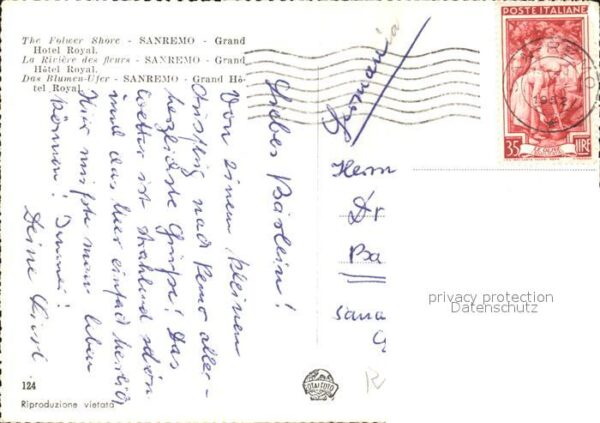 The Folwer Shore - SANREMO - Grand
Hotel Royal.
La Rivière des fleurs - SANREMO - Grand
Hôtel Royal.
Das Blumen-Ufer - SANREMO - Grand Hô-
tel Royal.
Liebes Bärlein!
Von einem kleinen
Ausflug nach Remo aller-
herzlichste Grüße! Das
Wetter ist strahlend schön
und das hier einfach herrlich
Hier müßte man leben
können! Immer!
Deine
Germania
Herrn
Dr
Ba
Sana
POSTE ITALIANE
35 LIRE
privacy protection
Datenschutz
124
Riproduzione vietata